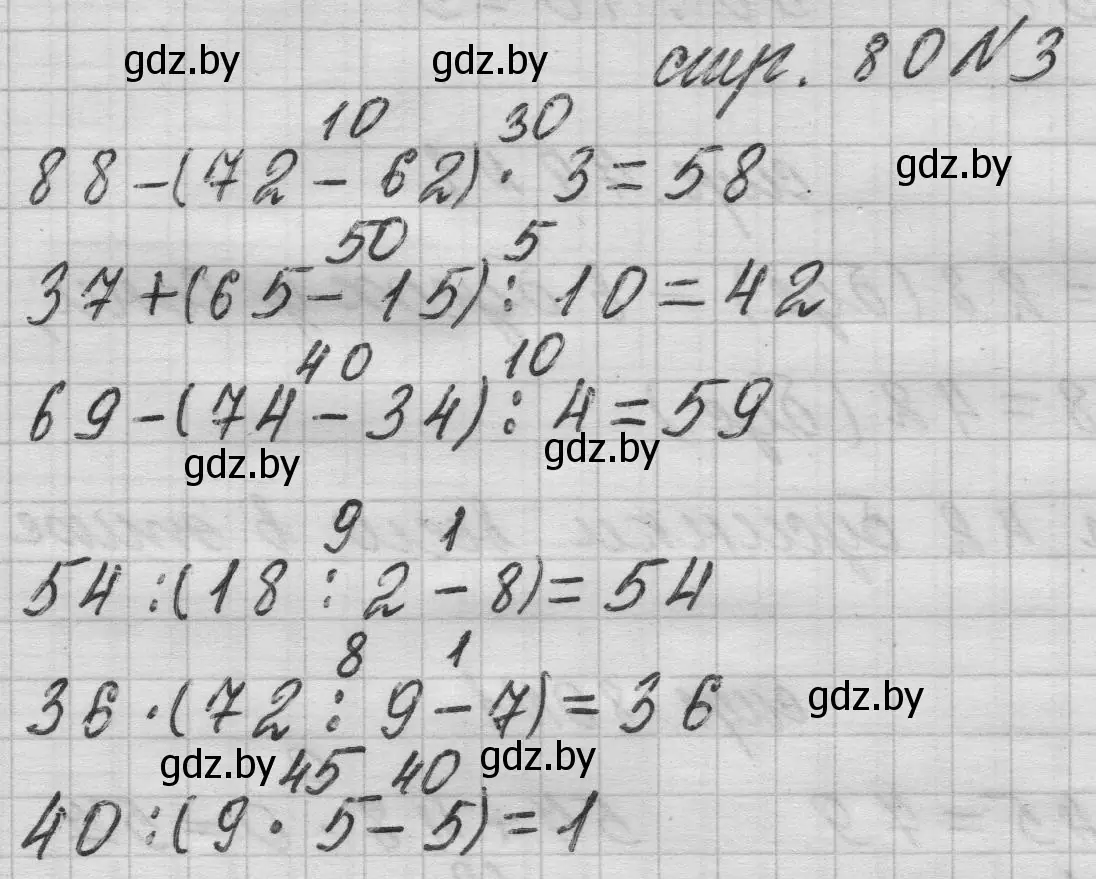 gdz.by gdz.by стр. 80 N 3
10 30
88-(72-62)·3=58 gdz.by
50 5
37+(65-15):10=42
40 10
69-(74-34):4=59
gdz.by gdz.by
9 1
54:(18:2-8)=54
8 1
36·(72:9-7)=36 gdz.by
gdz.by 45 40 gdz.by
40:(9·5-5)=1